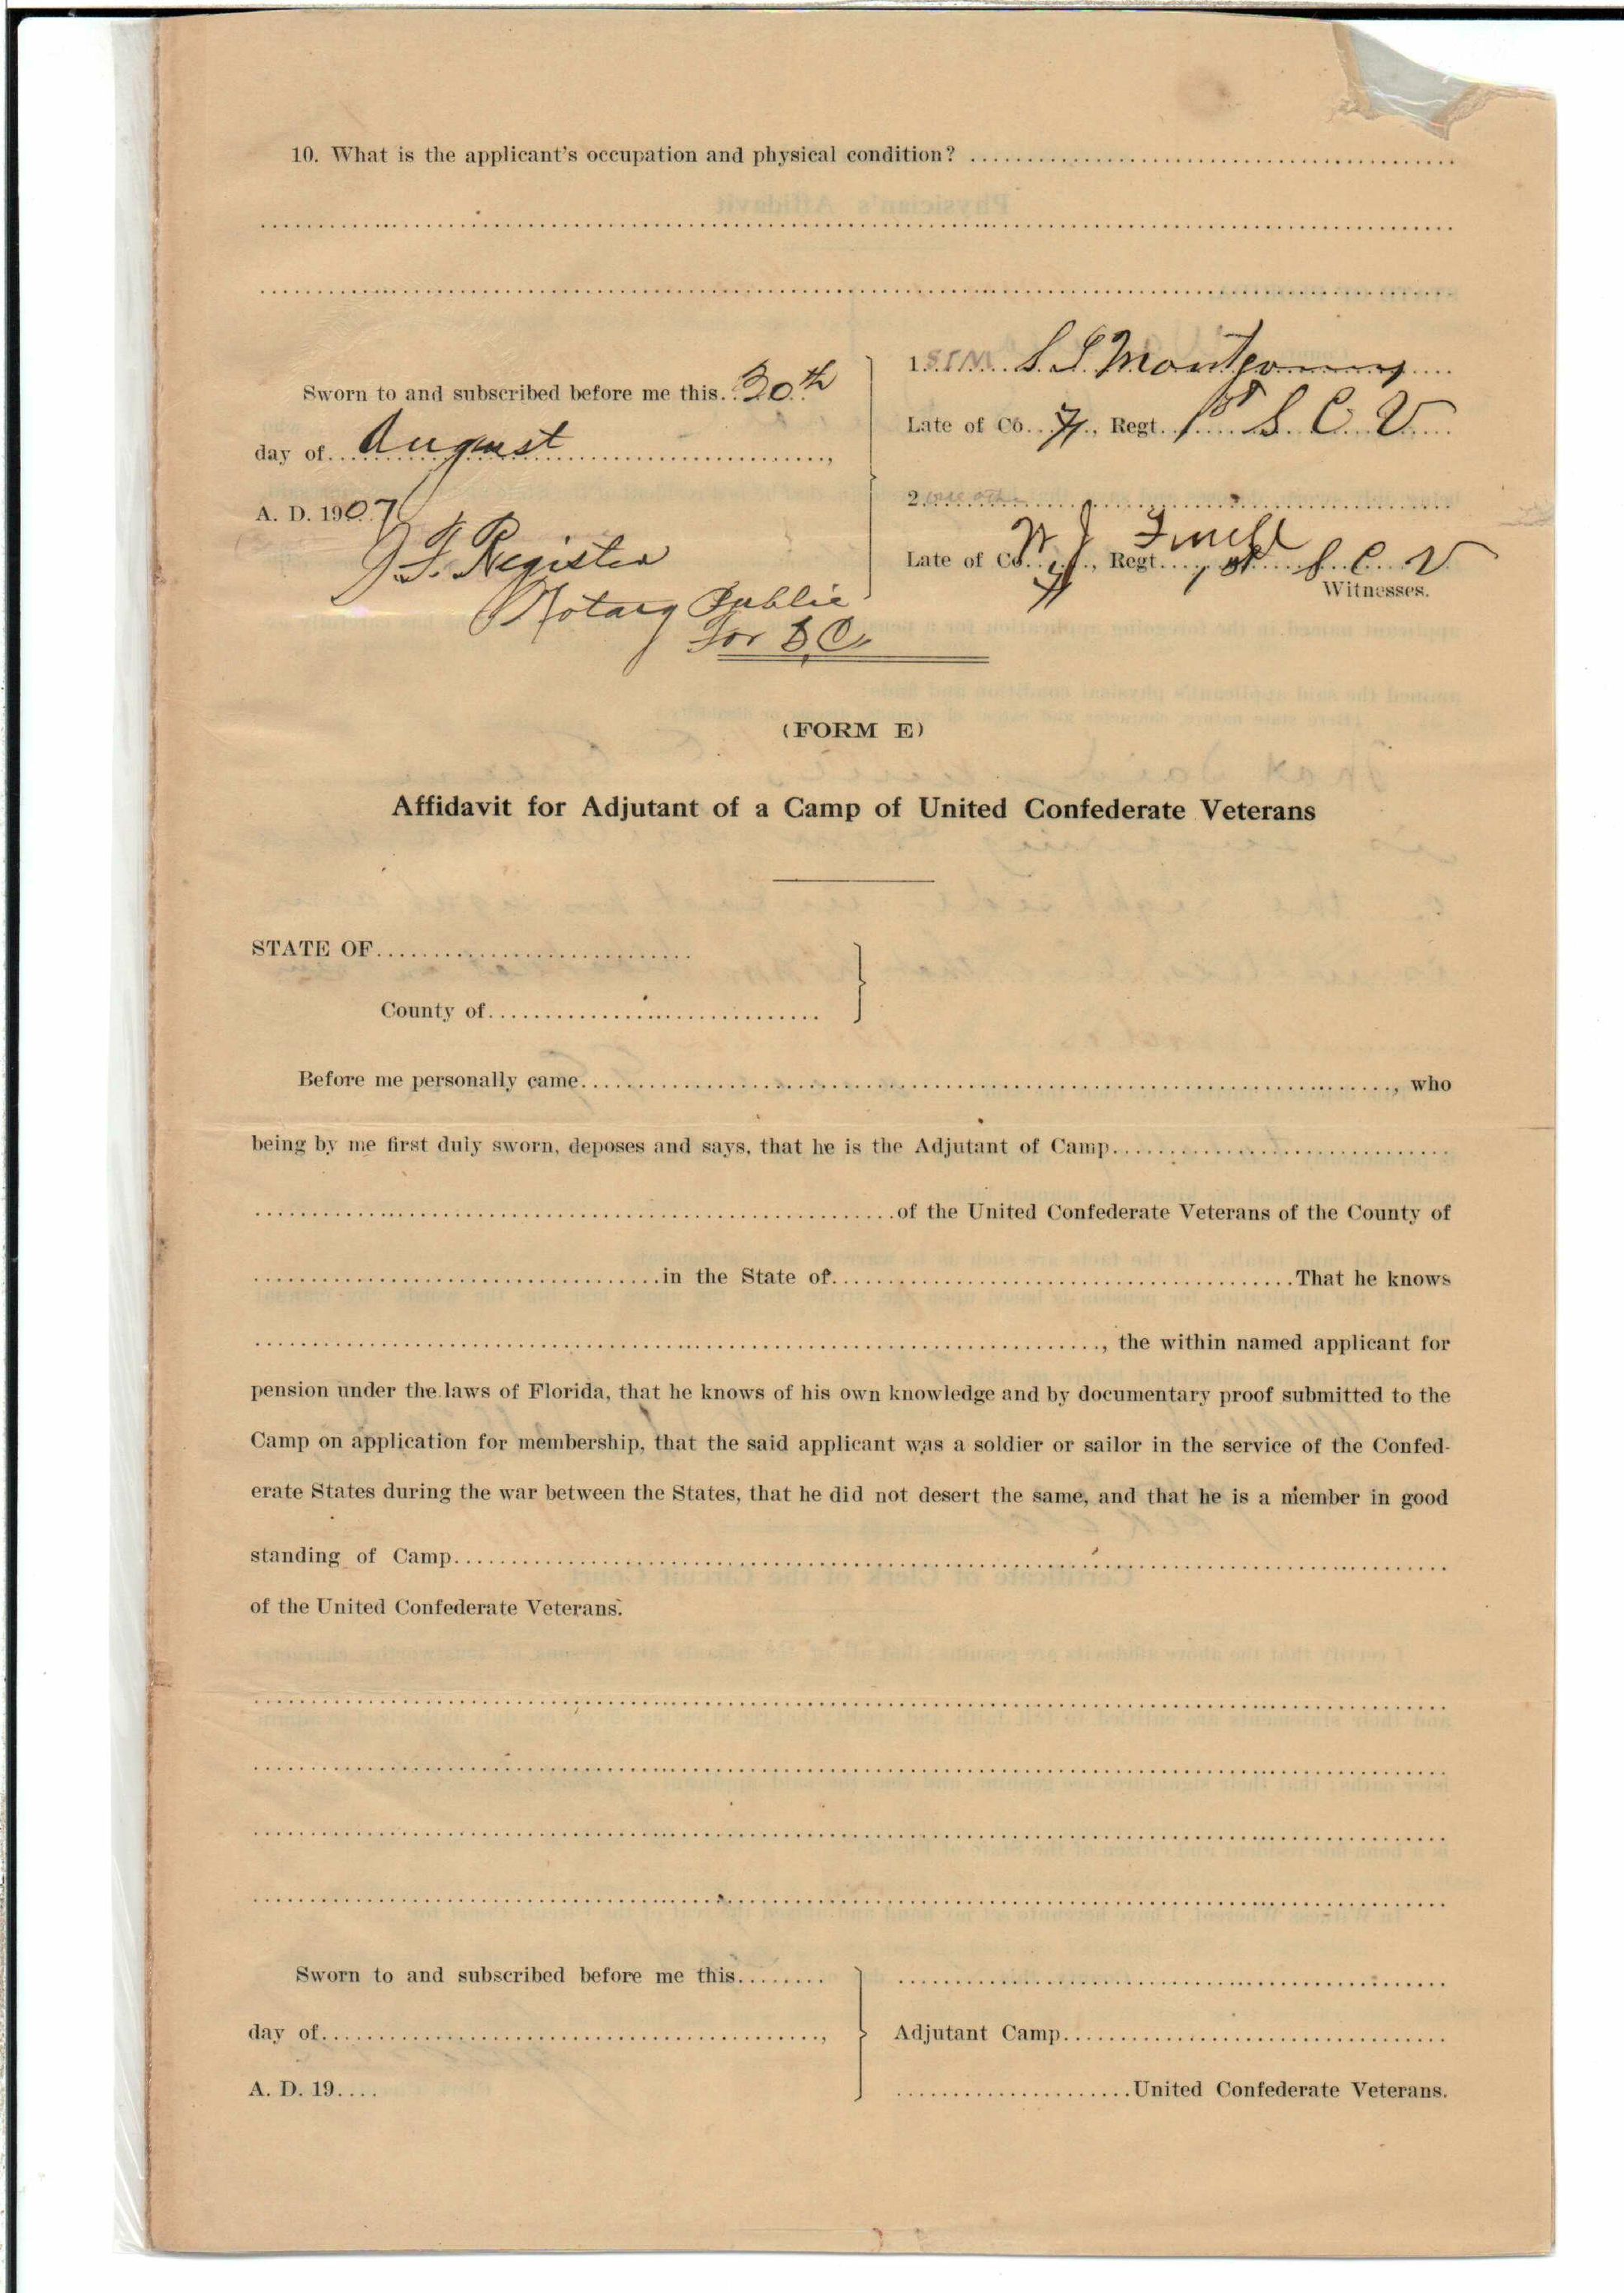 10. What is the applicant's occupation and physical condition?
Sworn to and subscribed before me this 30th
day of August,
A. D. 1907
J. F. Register
Notary Public
for S C
1. S. S. Montgomery
Late of Co. H, Regt. 1st S. C. V.
2.
W. J.
Late of Co. H, Regt. 1st S. C. V
Witnesses.
(FORM E)
Affidavit for Adjutant of a Camp of United Confederate Veterans
STATE OF
County of
Before me personally came, who
being by me first duly sworn, deposes and says, that he is the Adjutant of Camp
of the United Confederate Veterans of the County of
in the State of That he knows
, the within named applicant for
pension under the laws of Florida, that he knows of his own knowledge and by documentary proof submitted to the
Camp on application for membership, that the said applicant was a soldier or sailor in the service of the Confed-
erate States during the war between the States, that he did not desert the same, and that he is a member in good
standing of Camp
of the United Confederate Veterans.
Sworn to and subscribed before me this
day of,
A. D. 19
Adjutant Camp
United Confederate Veterans.